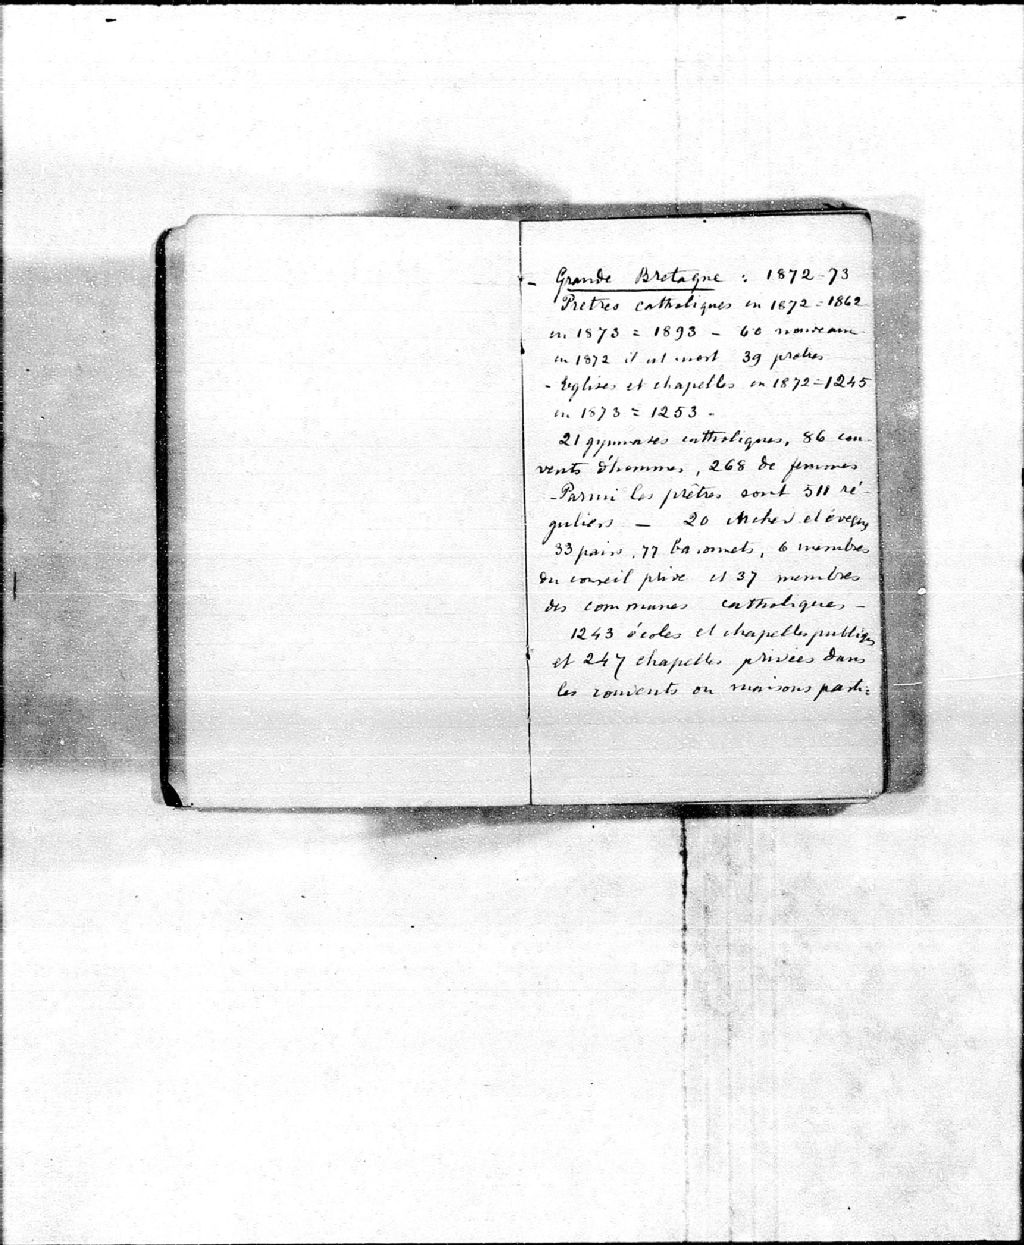 - Grande Bretagne : 1872-73
Prêtres catholiques en 1872 = 1862
en 1873 = 1893 - 60 nouveaux
en 1872 il est mort 39 prêtres
- Eglises et chapelles en 1872 = 1245
en 1873 = 1253 -
21 gymnases catholiques, 86 cou-
vents d'hommes, 268 de femmes
- Parmi les prêtres sont 511 ré-
guliers - 20 Arches et évêques
33 pairs, 77 baronnets, 6 membres
du conseil privé et 37 membres
des communes catholiques -
1243 écoles et chapelles publiques
et 247 chapelles privées dans
les couvents ou maisons parti=